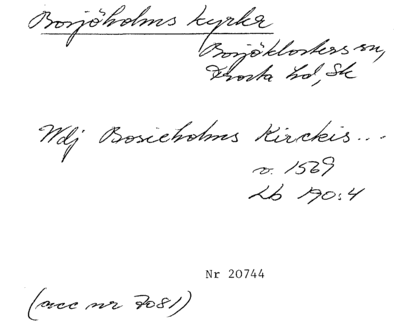 Bosjöholms kyrka
Bosjöklosters sn,
Frosta hd, Sk
Wdj Bosieholms Kirckis...
v. 1569
Lb 190:4
Nr 20744
(acc nr 7081)